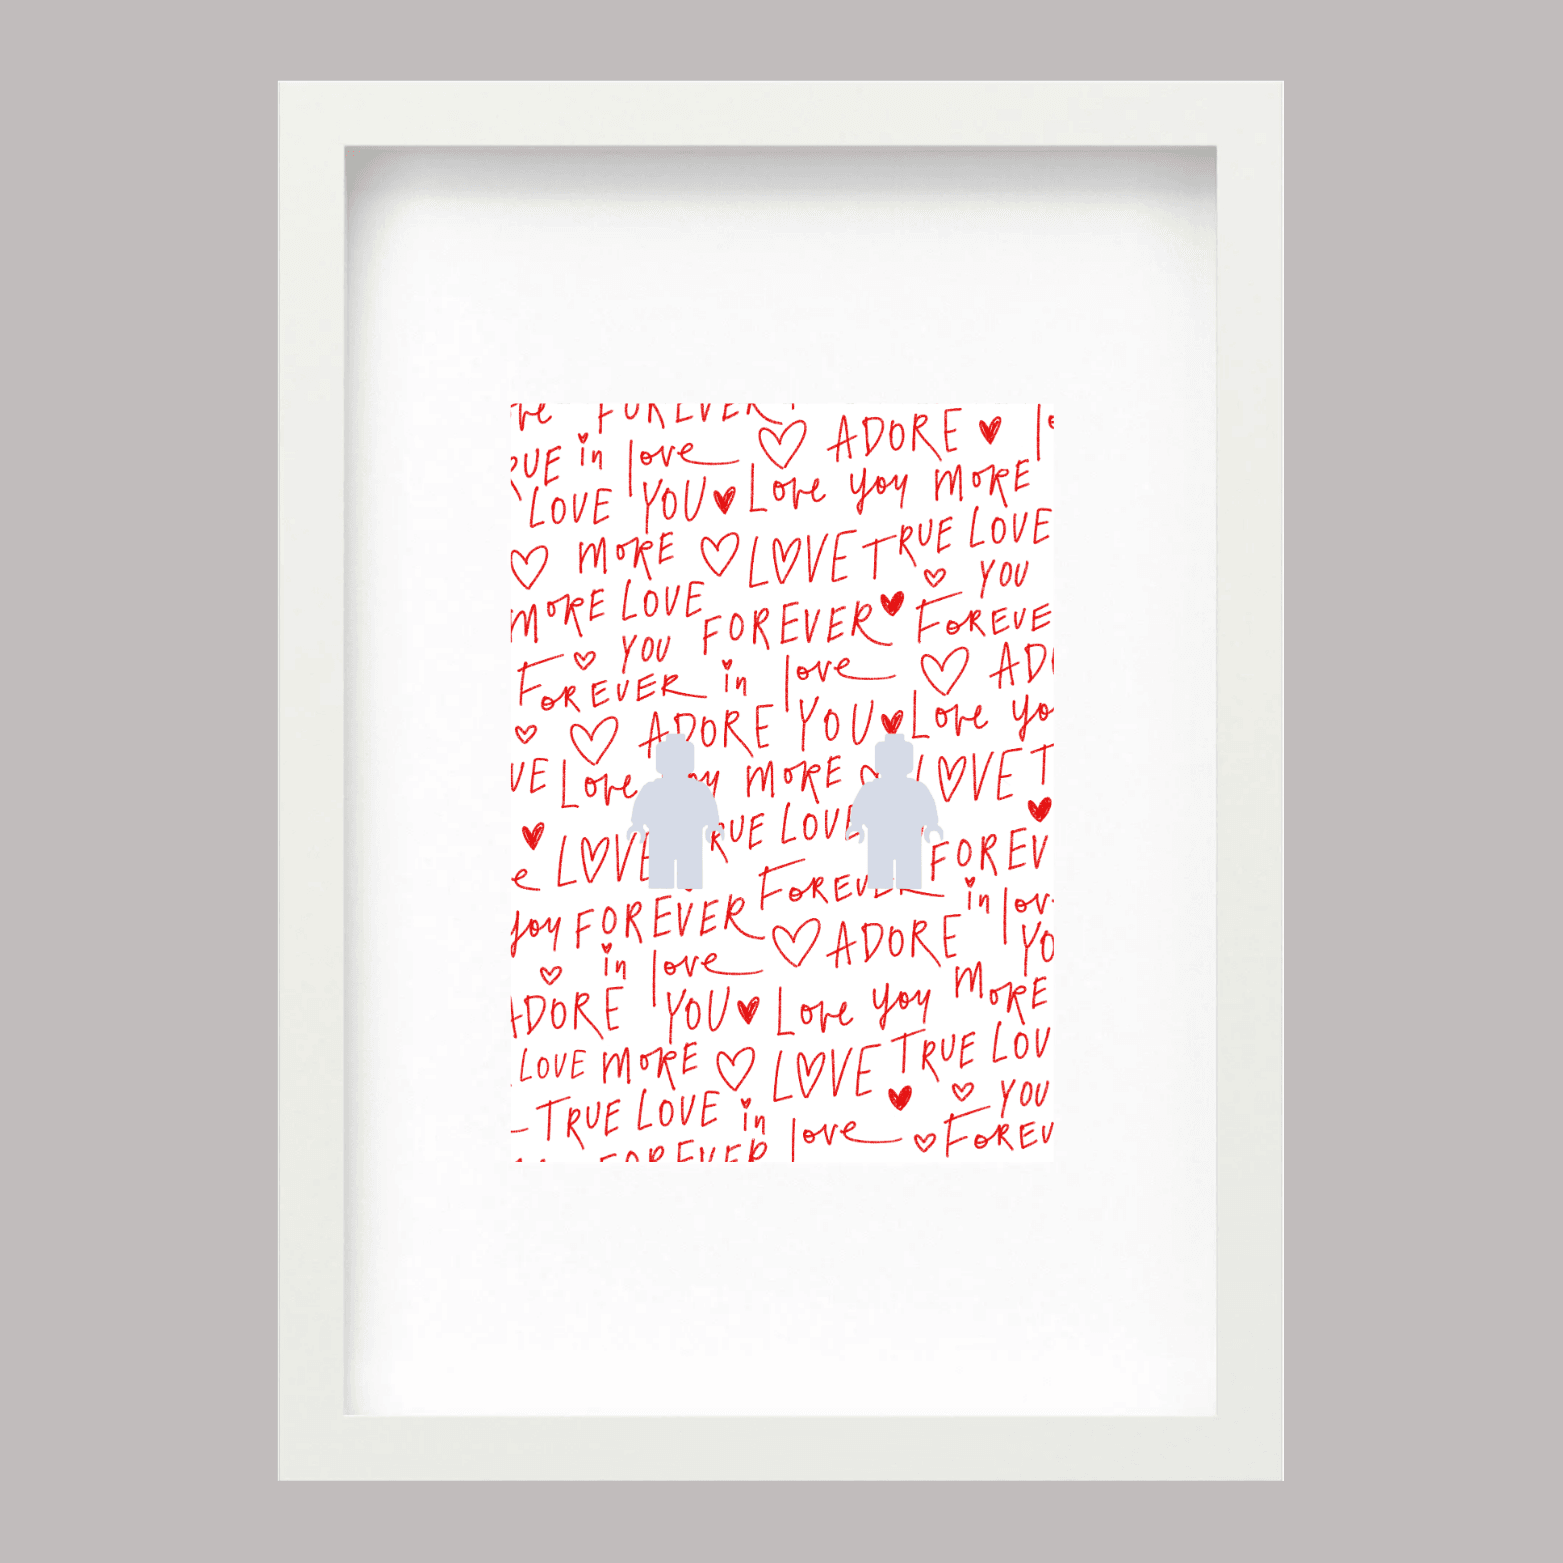 FOREVER
in love ADORE
LOVE YOU Love you MORE
MORE LOVE TRUE LOVE
YOU
MORE LOVE FOREVER
YOU
FOREVER in love
ADORE YOU Love yo
Love MORE LOVE T
LOVE RUE LOVE
FOREV
FOREVER in
you FOREVER ADORE
in love
ADORE YOU Love you MORE
LOVE MORE LOVE TRUE LOV
YOU
TRUE LOVE in love FOREV
FOREVER